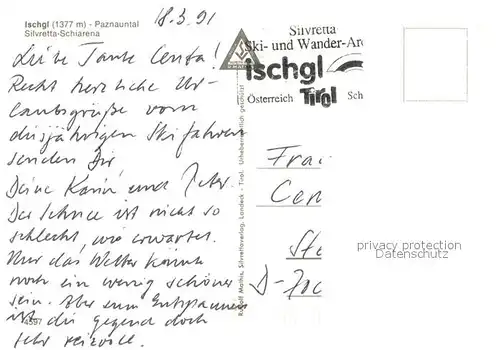 Ischgl (1377 m) - Paznauntal
Silvretta-Schiarena
18.3.91
Liebe Tante Centa!
Recht herzliche Ur-
laubsgrüße vom
diesjährigen Skifahren
senden Dir
Deine Karin und Peter.
Der Schnee ist nicht so
schlecht, wie erwartet.
Nur das Wetter könnte
noch ein wenig schöner
sein. Aber zum Entspannen
ist die Gegend doch
sehr reizvoll.
4597
Rudolf Mathis, Silvrettaverlag, Landeck - Tirol. Urheberrechtlich geschützt
Silvretta
Ski- und Wander-Are
ischgl
Österreich Tirol Sch
Frau
Cen
Ste
D-
privacy protection
Datenschutz